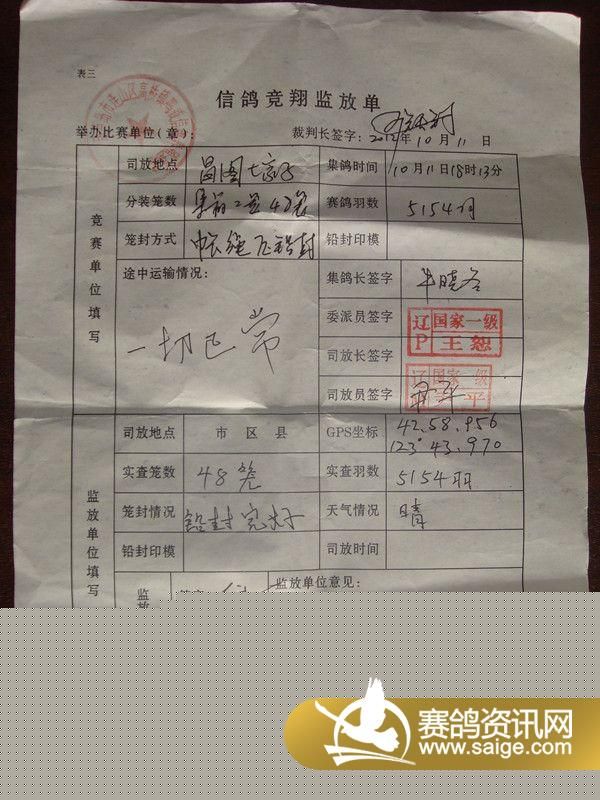 表三
信鸽竞翔监放单
举办比赛单位(章): 裁判长签字: 2012年10月11日
竞赛单位填写
司放地点 昌图 集鸽时间 10月11日18时13分
分装笼数 赛鸽羽数 5154羽
笼封方式 铅封印模
途中运输情况: 一切正常
集鸽长签字 牛晓冬
委派员签字 辽P 国家一级 王恕
司放长签字
司放员签字 辽 国家一级 平
监放单位填写
司放地点 市区县 GPS坐标 42.58.956
123°43.970
实查笼数 48笼 实查羽数 5154羽
笼封情况 铅封完好 天气情况 晴
铅封印模 司放时间
监放 监放单位意见:
赛鸽资讯网
www.saige.com